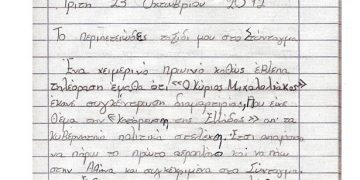 Τρίτη 23 Οκτωβρίου 2012
Το περιπετειώδες ταξίδι μου στο Σύνταγμα
Ένα χειμερινό πρωινό καθώς έβλεπα
τηλεόραση έμαθα ότι «Ο κύριος Μιχαλολιάκος»
έκανε συγκέντρωση διαμαρτυρίας, που είχε
θέμα την «κατάρευση της Ελλάδος» απ' τα
κυβερνητικά πολιτικά στελέχη. Έτσι αποφάσισα
να πάρω το πρώτο αεροπλάνο και να πάω
στην Αθήνα και συγκεκριμένα στο Σύνταγμα